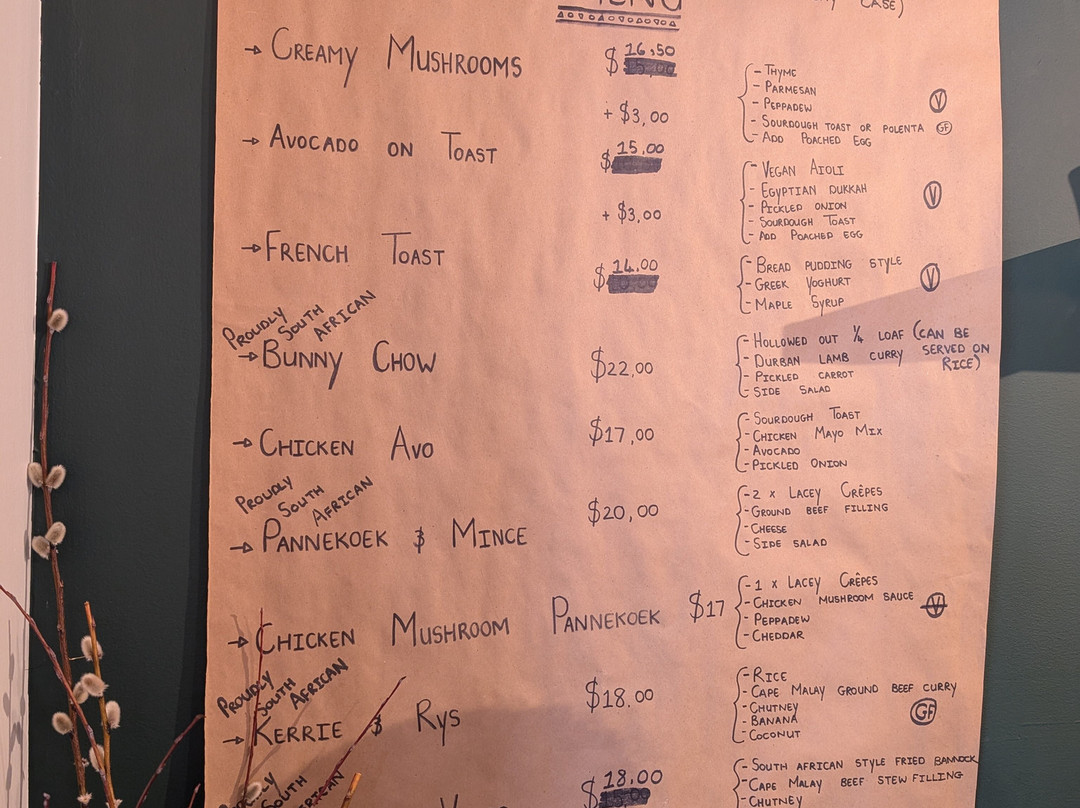 CASE)
→ CREAMY MUSHROOMS $ 16.50
- THYME
- PARMESAN
- PEPPADEW
- SOURDOUGH TOAST OR POLENTA GF
- ADD POACHED EGG
V
+ $3,00
→ AVOCADO ON TOAST $ 15.00
- VEGAN AIOLI
- EGYPTIAN DUKKAH
- PICKLED ONION
- SOURDOUGH TOAST
- ADD POACHED EGG
V
+ $3,00
→ FRENCH TOAST $ 14.00
- BREAD PUDDING STYLE
- GREEK YOGHURT
- MAPLE SYRUP
V
PROUDLY SOUTH AFRICAN
→ BUNNY CHOW $22,00
- HOLLOWED OUT 1/4 LOAF (CAN BE SERVED ON RICE)
- DURBAN LAMB CURRY
- PICKLED CARROT
- SIDE SALAD
→ CHICKEN AVO $17,00
- SOURDOUGH TOAST
- CHICKEN MAYO MIX
- AVOCADO
- PICKLED ONION
PROUDLY SOUTH AFRICAN
→ PANNEKOEK & MINCE $20,00
- 2 x LACEY CRÊPES
- GROUND BEEF FILLING
- CHEESE
- SIDE SALAD
→ CHICKEN MUSHROOM PANNEKOEK $17
- 1 x LACEY CRÊPES
- CHICKEN MUSHROOM SAUCE
- PEPPADEW
- CHEDDAR
PROUDLY SOUTH AFRICAN
→ KERRIE & RYS $18.00
- RICE
- CAPE MALAY GROUND BEEF CURRY
- CHUTNEY
- BANANA
- COCONUT
GF
SOUTH
$ 18,00
- SOUTH AFRICAN STYLE FRIED BANNOCK
- CAPE MALAY BEEF STEW FILLING
- CHUTNEY